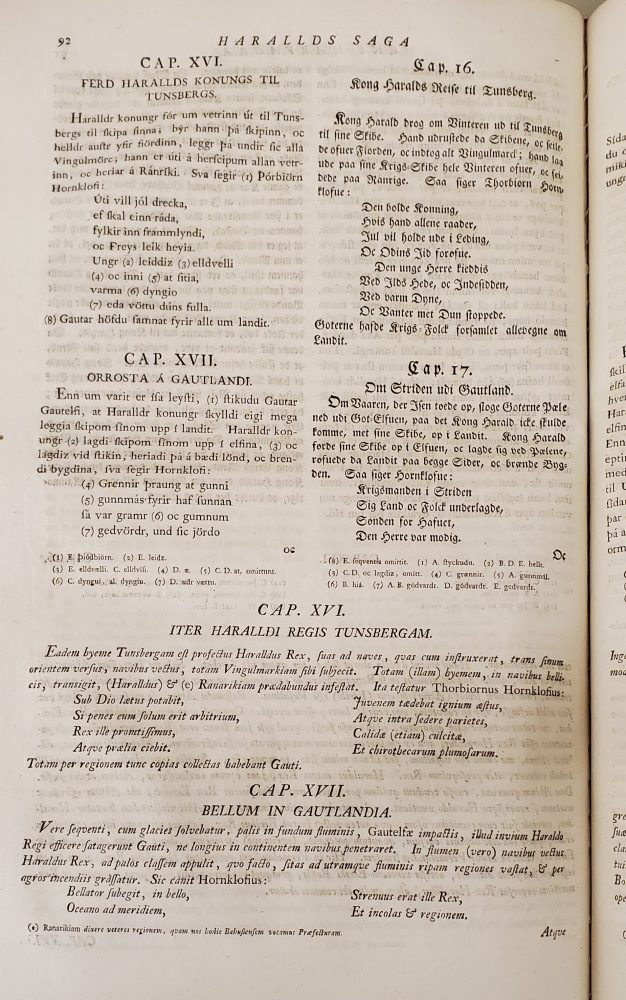 92
HARALLDS SAGA
CAP. XVI.
FERD HARALLDS KONUNGS TIL
TUNSBERGS.
Haralldr konungr fór um vetrinn út til Tuns-
bergs til ſkipa ſinna; býr hann þá ſkipinn, oc
helldr auſtr yfir fiördinn, leggr þá undir ſic alla
Vingulmörc; hann er úti á herſcipum allan vetr-
inn, oc heriar á Ránríki. Sva ſegir (1) Þórbiörn
Hornklofi:
Úti vill jól drecka,
ef ſkal einn ráda,
fylkir inn frammlyndi,
oc Freys leik heyia.
Ungr (2) leiddiz (3) elldvelli
(4) oc inni (5) at ſitia,
varma (6) dyngio
(7) eda vöttu dúns fulla.
(8) Gautar höfdu ſamnat fyrir allt um landit.
CAP. XVII.
ORROSTA Á GAUTLANDI.
Enn um varit er íſa leyſti, (1) ſtikudu Gautar
Gautelfi, at Haralldr konungr ſkylldi eigi mega
leggia ſkipom ſínom upp í landit. Haralldr kon-
ungr (2) lagdi ſkipom ſínom upp í elfina, (3) oc
lagdiz vid ſtikin; heriadi þá á bædi lönd, oc bren-
di bygdina, ſva ſegir Hornklofi:
(4) Grennir þraung at gunni
(5) gunnmás fyrir haf ſunnan
ſá var gramr (6) oc gumnum
(7) gedvördr, und ſic jördo
oc
(1) E. Þiódbiörn. (2) E. leidz.
(3) E. elldvælli. C. elldviſi. (4) D. æ. (5) C. D. at, omittunt.
(6) C. dyngui, al. dyngiu. (7) D. ædr vættu.
Cap. 16.
Kong Haralds Reiſe til Tunsberg.
Kong Harald drog om Vinteren ud til Tunsberg
til ſine Skibe. Hand udruſtede da Skibene, oc ſeile-
de ofuer Fiorden, oc indtog alt Vingulmarck; hand laa
ude paa ſine Krigs-Skibe hele Vinteren ofuer, oc hei-
dede paa Ranrige. Saa ſiger Thorbiorn Horn-
klofue:
Den bolde Konning,
Hvis hand allene raader,
Jul vil holde ude i Leding,
Oc Odins Jid forøfue.
Den unge Herre kieddis
Ved Ilds Hede, oc Indeſidden,
Ved varm Dyne,
Oc Vanter met Dun ſtoppede.
Goterne hafde Krigs-Folck forſamlet allevegne om
Landit.
Cap. 17.
Om Striden udi Gautland.
Om Vaaren, der Iſen toede op, ſloge Goterne Pæle
ned udi Got-Elfuen, paa det Kong Harald icke ſkulde
komme, met ſine Skibe, op i Landit. Kong Harald
førde ſine Skibe op i Elfuen, oc lagde ſig ved Pælene,
røfuede da Landit paa begge Sider, oc brænde Byg-
den. Saa ſiger Hornklofue:
Krigsmanden i Striden
Sig Land oc Folck underlagde,
Sønden for Hafuet,
Den Herre var modig.
Oc
(8) E. ſeqventia omittit. (1) A. ſtyckudu. (2) B. D. E. hellt.
(3) C. D. oc legdiz, omitt. (4) C. grænnir. (5) A. gunnmál.
(6) B. hiá. (7) A. B. gódvardr. D. gódvardr. E. gedvardr.
CAP. XVI.
ITER HARALLDI REGIS TUNSBERGAM.
Eadem hyeme Tunsbergam eſt profectus Haralldus Rex, ſuas ad naves, quas cum inſtruxerat, trans ſinum
orientem verſus, navibus vectus, totam Vingulmarkiam ſibi ſubjecit. Totam (illam) hyemem, in navibus belli-
cis, transigit, (Haralldus) & (e) Ranarikiam prædabundus infeſtat. Ita teſtatur Thorbiornus Hornklofius:
Sub Dio lætus potabit,
Si penes eum ſolum erit arbitrium,
Rex ille promtiſſimus,
Atqve prælia ciebit.
Juvenem tædebat ignium æſtus,
Atqve intra ſedere parietes,
Calidæ (etiam) culcitæ,
Et chirothecarum plumoſarum.
Totam per regionem tunc copias collectas habebant Gauti.
CAP. XVII.
BELLUM IN GAUTLANDIA.
Vere ſeqventi, cum glacies ſolvebatur, palis in fundum fluminis, Gautelfæ impactis, illud invium Haraldo
Regi efficere ſatagerunt Gauti, ne longius in continentem navibus penetraret. In flumen (vero) navibus vectus
Haraldus Rex, ad palos claſſem appulit, qvo facto, ſitas ad utramqve fluminis ripam regiones vaſtat, & per
agros incendiis graſſatur. Sic canit Hornklofius:
Bellator ſubegit, in bello,
Oceano ad meridiem,
Strenuus erat ille Rex,
Et incolas & regionem.
(e) Ranarikiam dixere veteres regionem, quam nos hodie Bahuſienſem vocamus Præfecturam.
Atqve